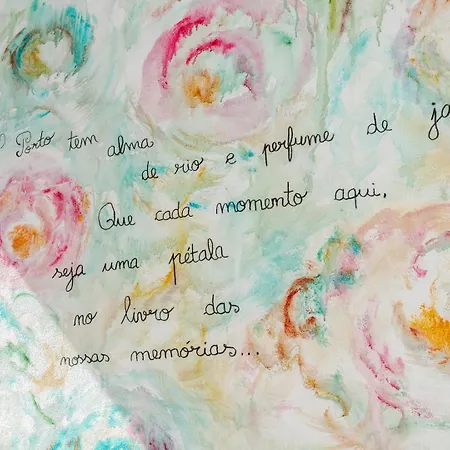 O Porto tem alma
de rio e perfume de
Que cada momento aqui,
seja uma pétala
no livro das
nossas memórias...